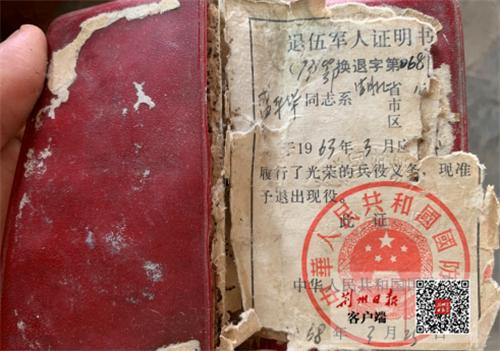 退伍军人证明书
换退字第068
同志系 省
市
区
于1963年3月
履行了光荣的兵役义务，现准
予退出现役。
此证
中华人民共和国国防
中华人民共和国
68年3月25日
荆州日报
客户端